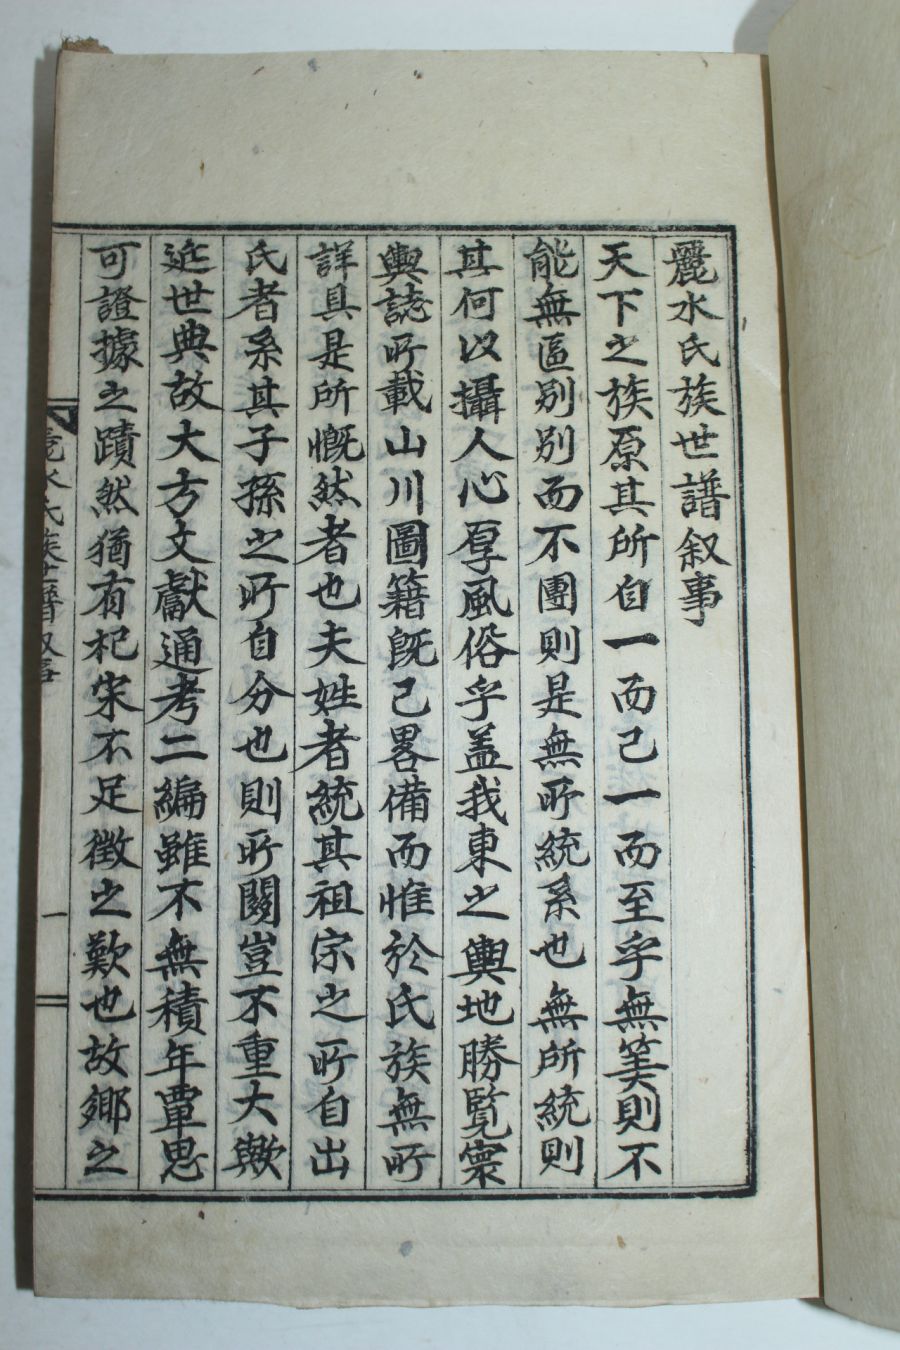 麗水氏族世譜叙事
天下之族原其所自一而己一而至乎無筭則不
能無區别别而不團則是無所統系也無所統則
其何以攝人心厚風俗乎盖我東之輿地勝覧寰
輿誌所載山川圖籍旣己畧備而惟於氏族無所
詳具是所慨然者也夫姓者統其祖宗之所自出
氏者系其子孫之所自分也則所關豈不重大歟
近世典故大方文獻通考二編雖不無積年覃思
可證據之蹟然猶有杞宋不足徵之歎也故鄉之
麗水氏族世譜叙事
一